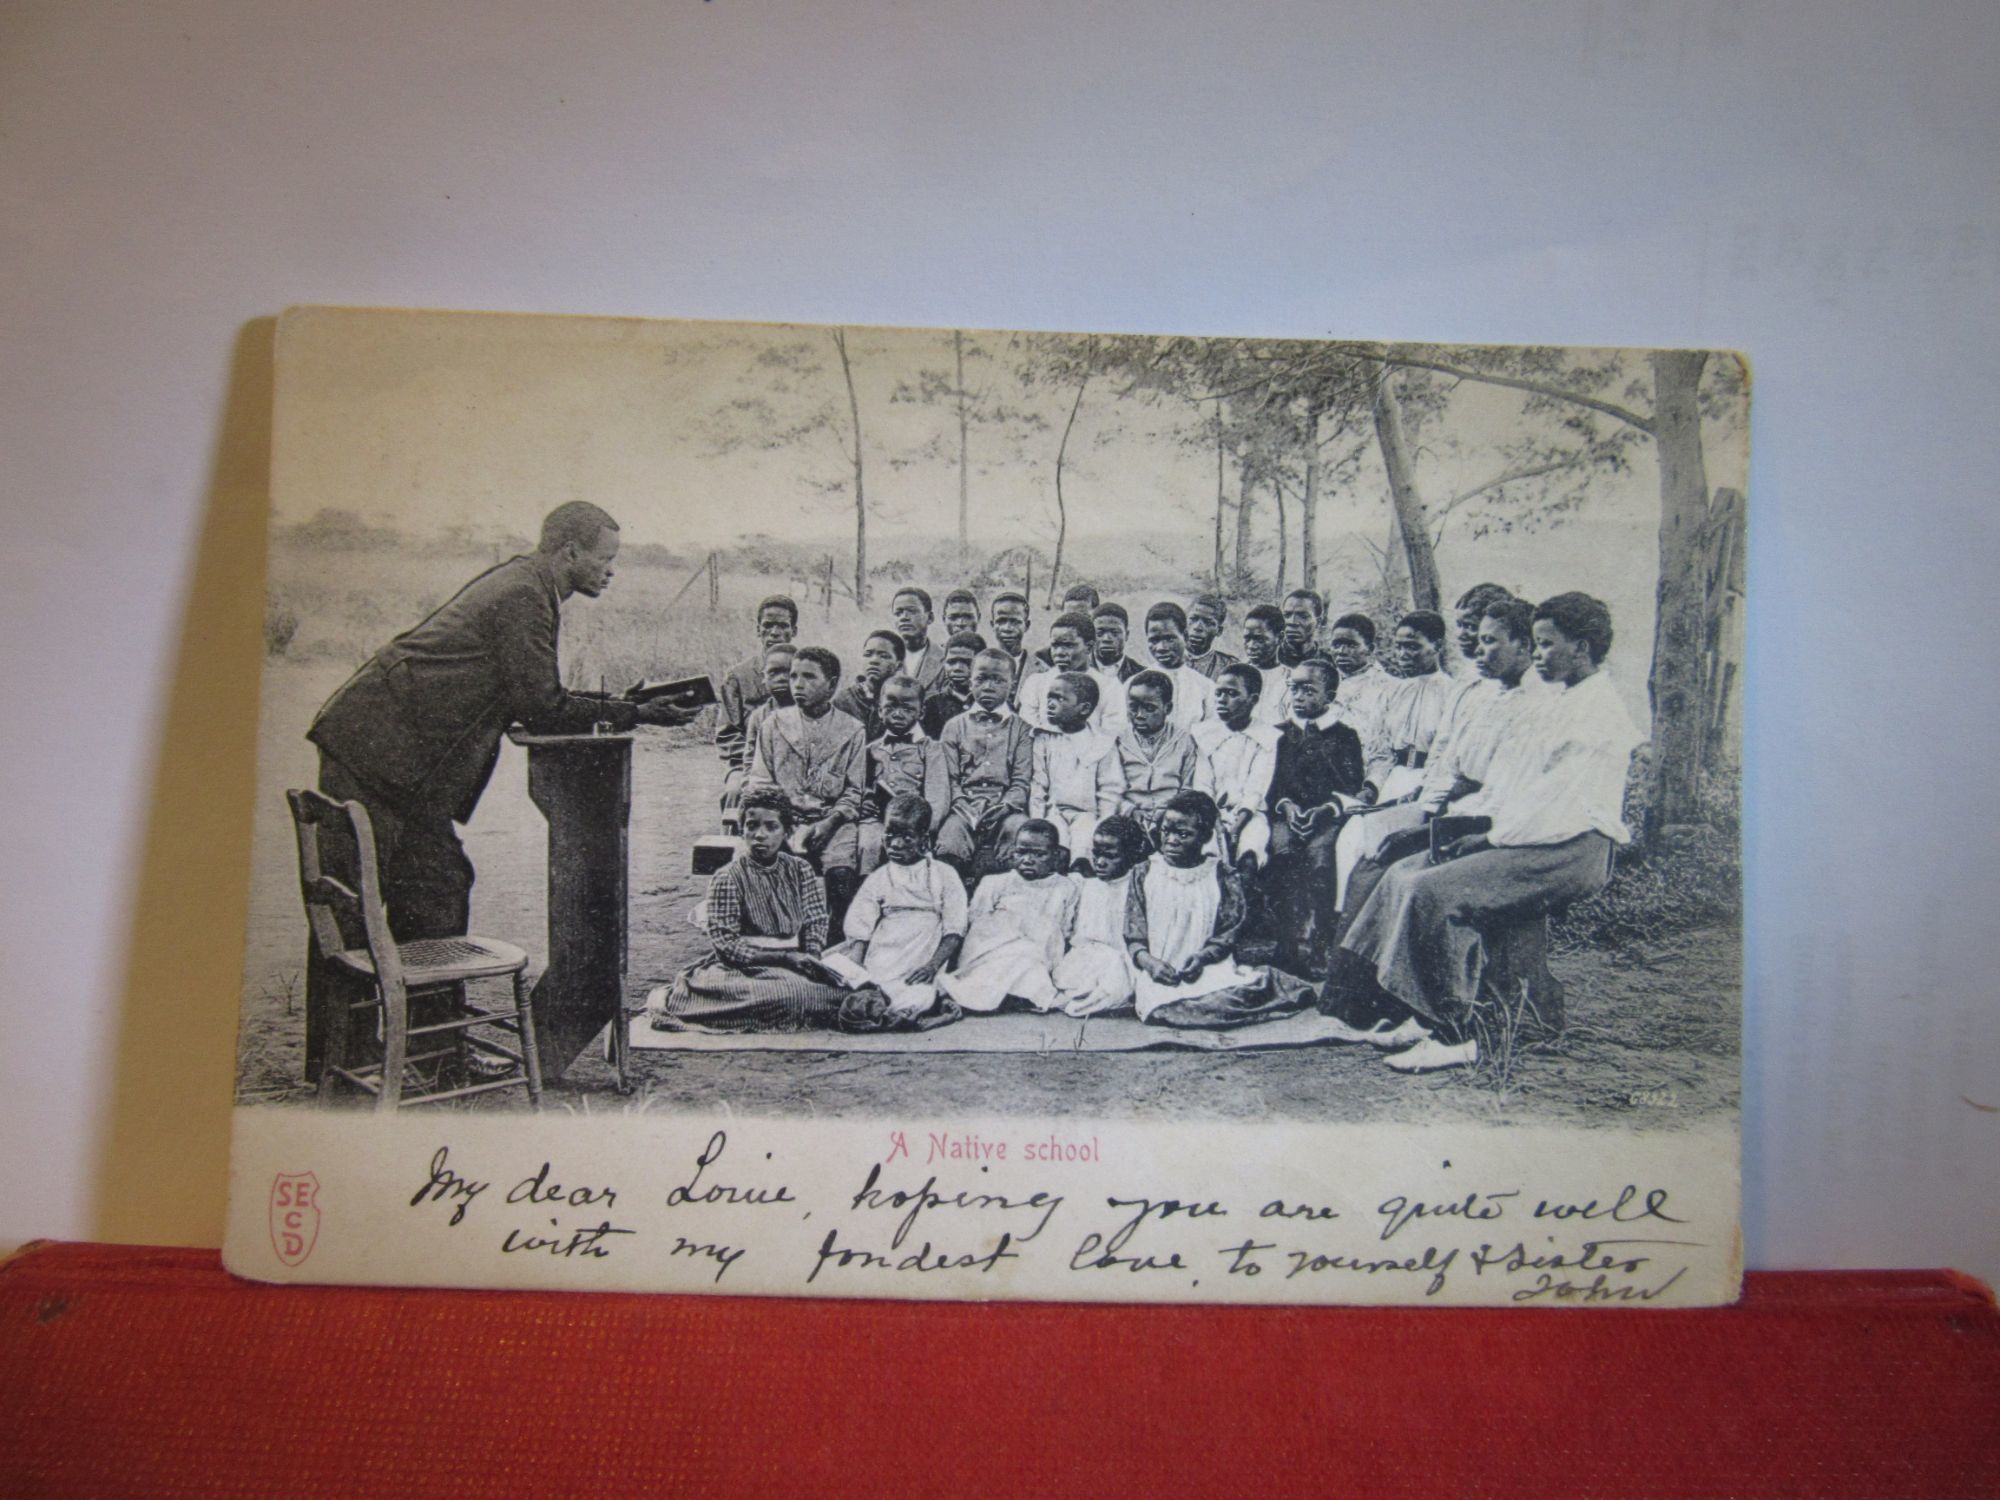 68922
A Native school
SE
C
D
My dear Louie, hoping you are quite well
with my fondest love, to yourself & Sister
John